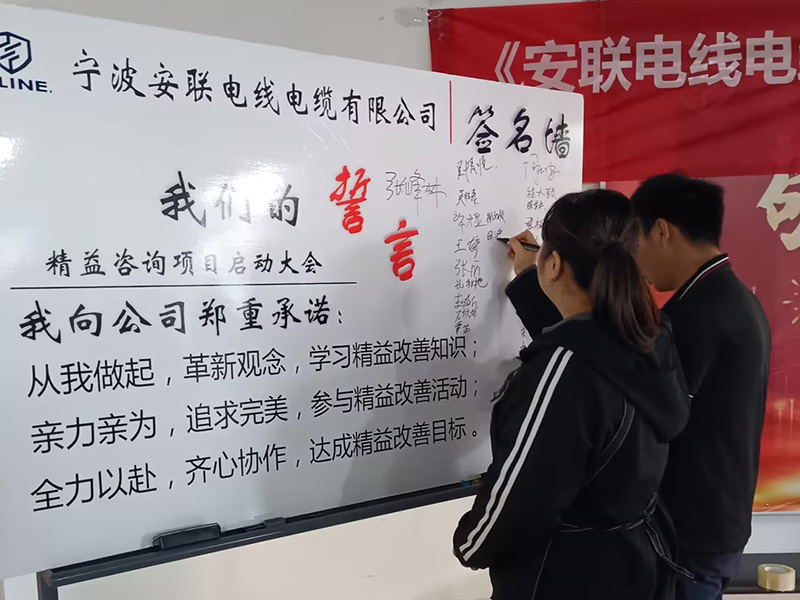 LINE.
宁波安联电线电缆有限公司
签名墙
《安联电线电
我们的
誓言
张峰林
精益咨询项目启动大会
我向公司郑重承诺：
从我做起，革新观念，学习精益改善知识；
亲力亲为，追求完美，参与精益改善活动；
全力以赴，齐心协作，达成精益改善目标。